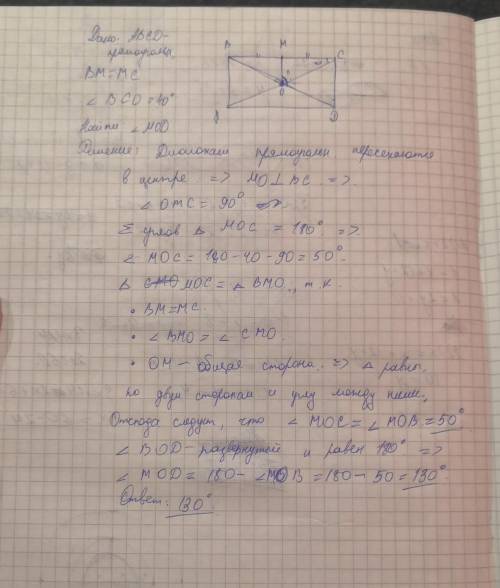 Дано: ABCD-
прямоугольн.
BM=MC
∠BCO=40°
Найти ∠MOD
B M C
O
D
Решение: Диагонали прямоугольн пересекаются
в центре => MO⊥BC =>
∠OMC = 90°
Σ углов Δ MOC = 180° =>
∠MOC = 180-40-90=50°.
Δ MOC = Δ BMO, т.к.
• BM=MC.
• ∠BMO = ∠CMO.
• OM - общая сторона. => Δ равн.
по двум сторонам и углу между ними.
Отсюда следует, что ∠MOC=∠MOB=50°
∠BOD-развернутый и равен 180° =>
∠MOD= 180-∠MOB=180-50=130°
Ответ: 130°